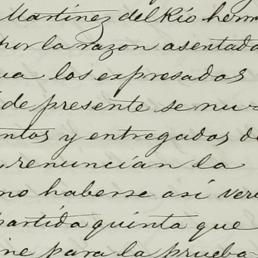 Martinez del Rio herm
por la razon asentada
va los expresados
de presente se nu-
ntos y entregados de
renuncian la
no haberse así veri
partida quinta que
ne para la prueba